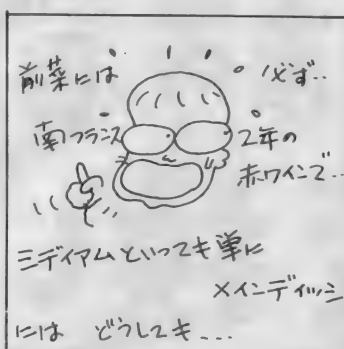 前菜には
必ず…
南フランス
2年の
赤ワインで…
ミディアムといっても単に
メインディッシュ
には どうしても…